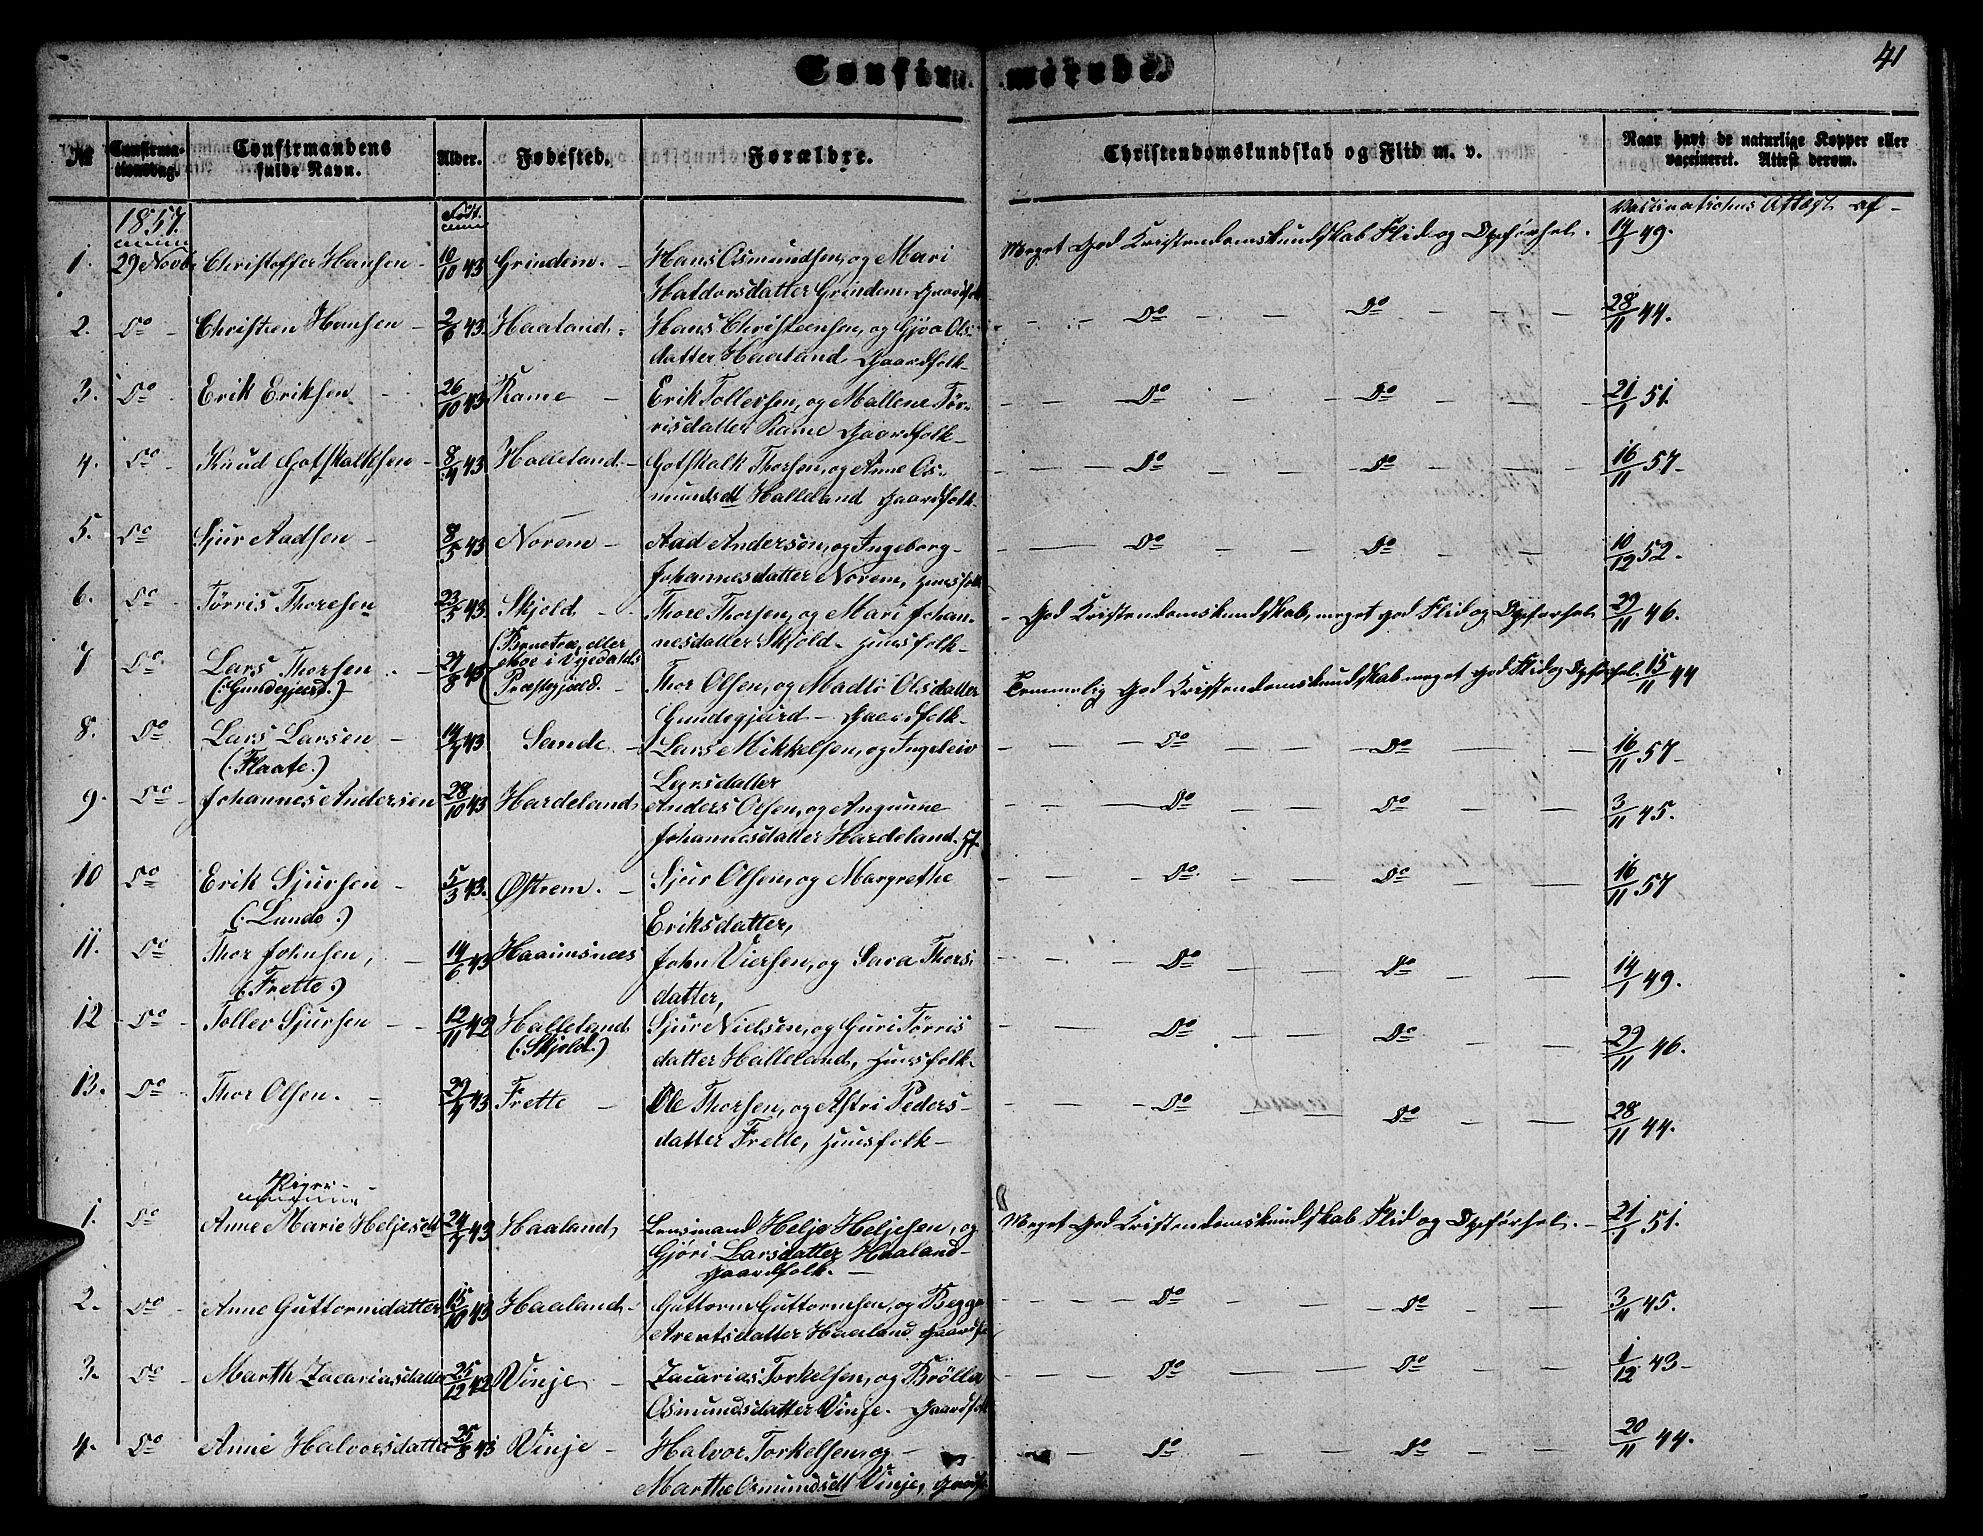 41
Confirmerede
No
Confirma-
tionsdag.
Confirmandens
fulde Navn.
Alder.
Fødested.
Forældre.
Christendomskundskab og Flid m. v.
Naar havt de naturlige Kopper eller
vaccineret. Attest derom.
1857.
Født.
Vaccinations Attest af
1. 29 Novb. Christoffer Hansen - 10/10 43 Grindem. - Hans Osmundsen, og Mari
Haldorsdatter Grindem, Gaardfolk
Meget God Kristendomskundskab Flid og Opførsel. 14/1 49.
2. Do - Christen Hansen - 2/6 43. Haaland - Hans Christensen, og Gjøa Ols-
datter Haaland Gaardfolk -
Do Do 28/11 44.
3. Do - Erik Eriksen - 26/10 43 Rame - Erik Tollefsen, og Mallene Tør-
risdatter Rame Gaardfolk -
Do Do 21/1 51.
4. Do - Knud Gotskalksen - 8/4 43 Halleland - Gotskalk Thorsen, og Anne Os-
mundsdt Halleland Gaardfolk -
Do Do 16/11 57 -
5. Do Sjur Aadsen - 8/5 43 Norem - Aad Andersen, og Ingeborg
Johannesdatter Norem, Huusfolk
Do Do 10/12 52.
6. Do - Tørris Thoresen 23/5 43. Skjold - Thore Thorsen, og Mari Johan-
nesdatter Skjold. Huusfolk -
- God Kristendomskundskab, meget god Flid og Opførsel 29/11 46.
7 Do. Lars Thorsen - 27/8 43
(:Gundegjerd.)
Præstegjæld. -
Thor Olsen, og Madli Olsdatter
Gundegjærd - Gaardfolk -
Temmelig God Kristendomskundskab meget god Flid og Opførsel. 15/11 44
8. Do Lars Larsen - 14/7 43 Sande - Lars Mikkelsen, og Ingeleiv
(:Flaate.)
Larsdatter
Do Do 16/11 57.
9. Do - Johannes Andersen 28/10 43 Hardeland Anders Olsen, og Angunne
Johannesdatter Hardeland. Hf.
Do Do 3/11 45.
10 Do Erik Sjursen - 5/3 43. Østrem. - Sjur Olsen, og Margrethe
(:Lunde:)
Eriksdatter,
Do. Do 16/11 57
11. Do Thor Johnsen, - 14/6 43 Haaimsnæs John Viersen, og Sara Thors-
(:Frette:)
datter,
Do Do 14/1 49.
12 - Do - Tollev Sjursen - 12/11 42 Halleland Sjur Nielsen, og Guri Tørris
(:Skjold.)
datter Halleland, Huusfolk -
Do Do 29/11 46.
13. Do - Thor Olsen. - 29/4 43 Frette - Ole Thorsen, og Astri Peders-
datter Frette, Huusfolk -
Do Do 28/11 44.
Piger
1. Do Anne Marie Heljesdt 24/7 43 Haaland, Lensmand Helje Heljesen, og
Gjøri Larsdatter Haaland -
Gaardfolk. -
Meget God Kristendomskundskab Flid og Opførsel. - 21/1 51.
2. Do - Anne Guttormsdatter 15/10 43 Haaland - Guttorm Guttormsen, og Begge
Arentsdatter Haaland Gaardfo
Do Do 3/11 45.
3. Do - Marthe Zacariasdatter 25/12 42 Vinje - Zacarias Torkelsen, og Brølla
Osmundsdatter Vinje. Gaardfolk
Do Do 1/12 43 -
4. Do Anne Halvorsdatter 25/8 43 Vinje - Halvor Torkelsen, og -
Marthe Osmundsdt Vinje, Gaardfo
Do Do 20/11 44.